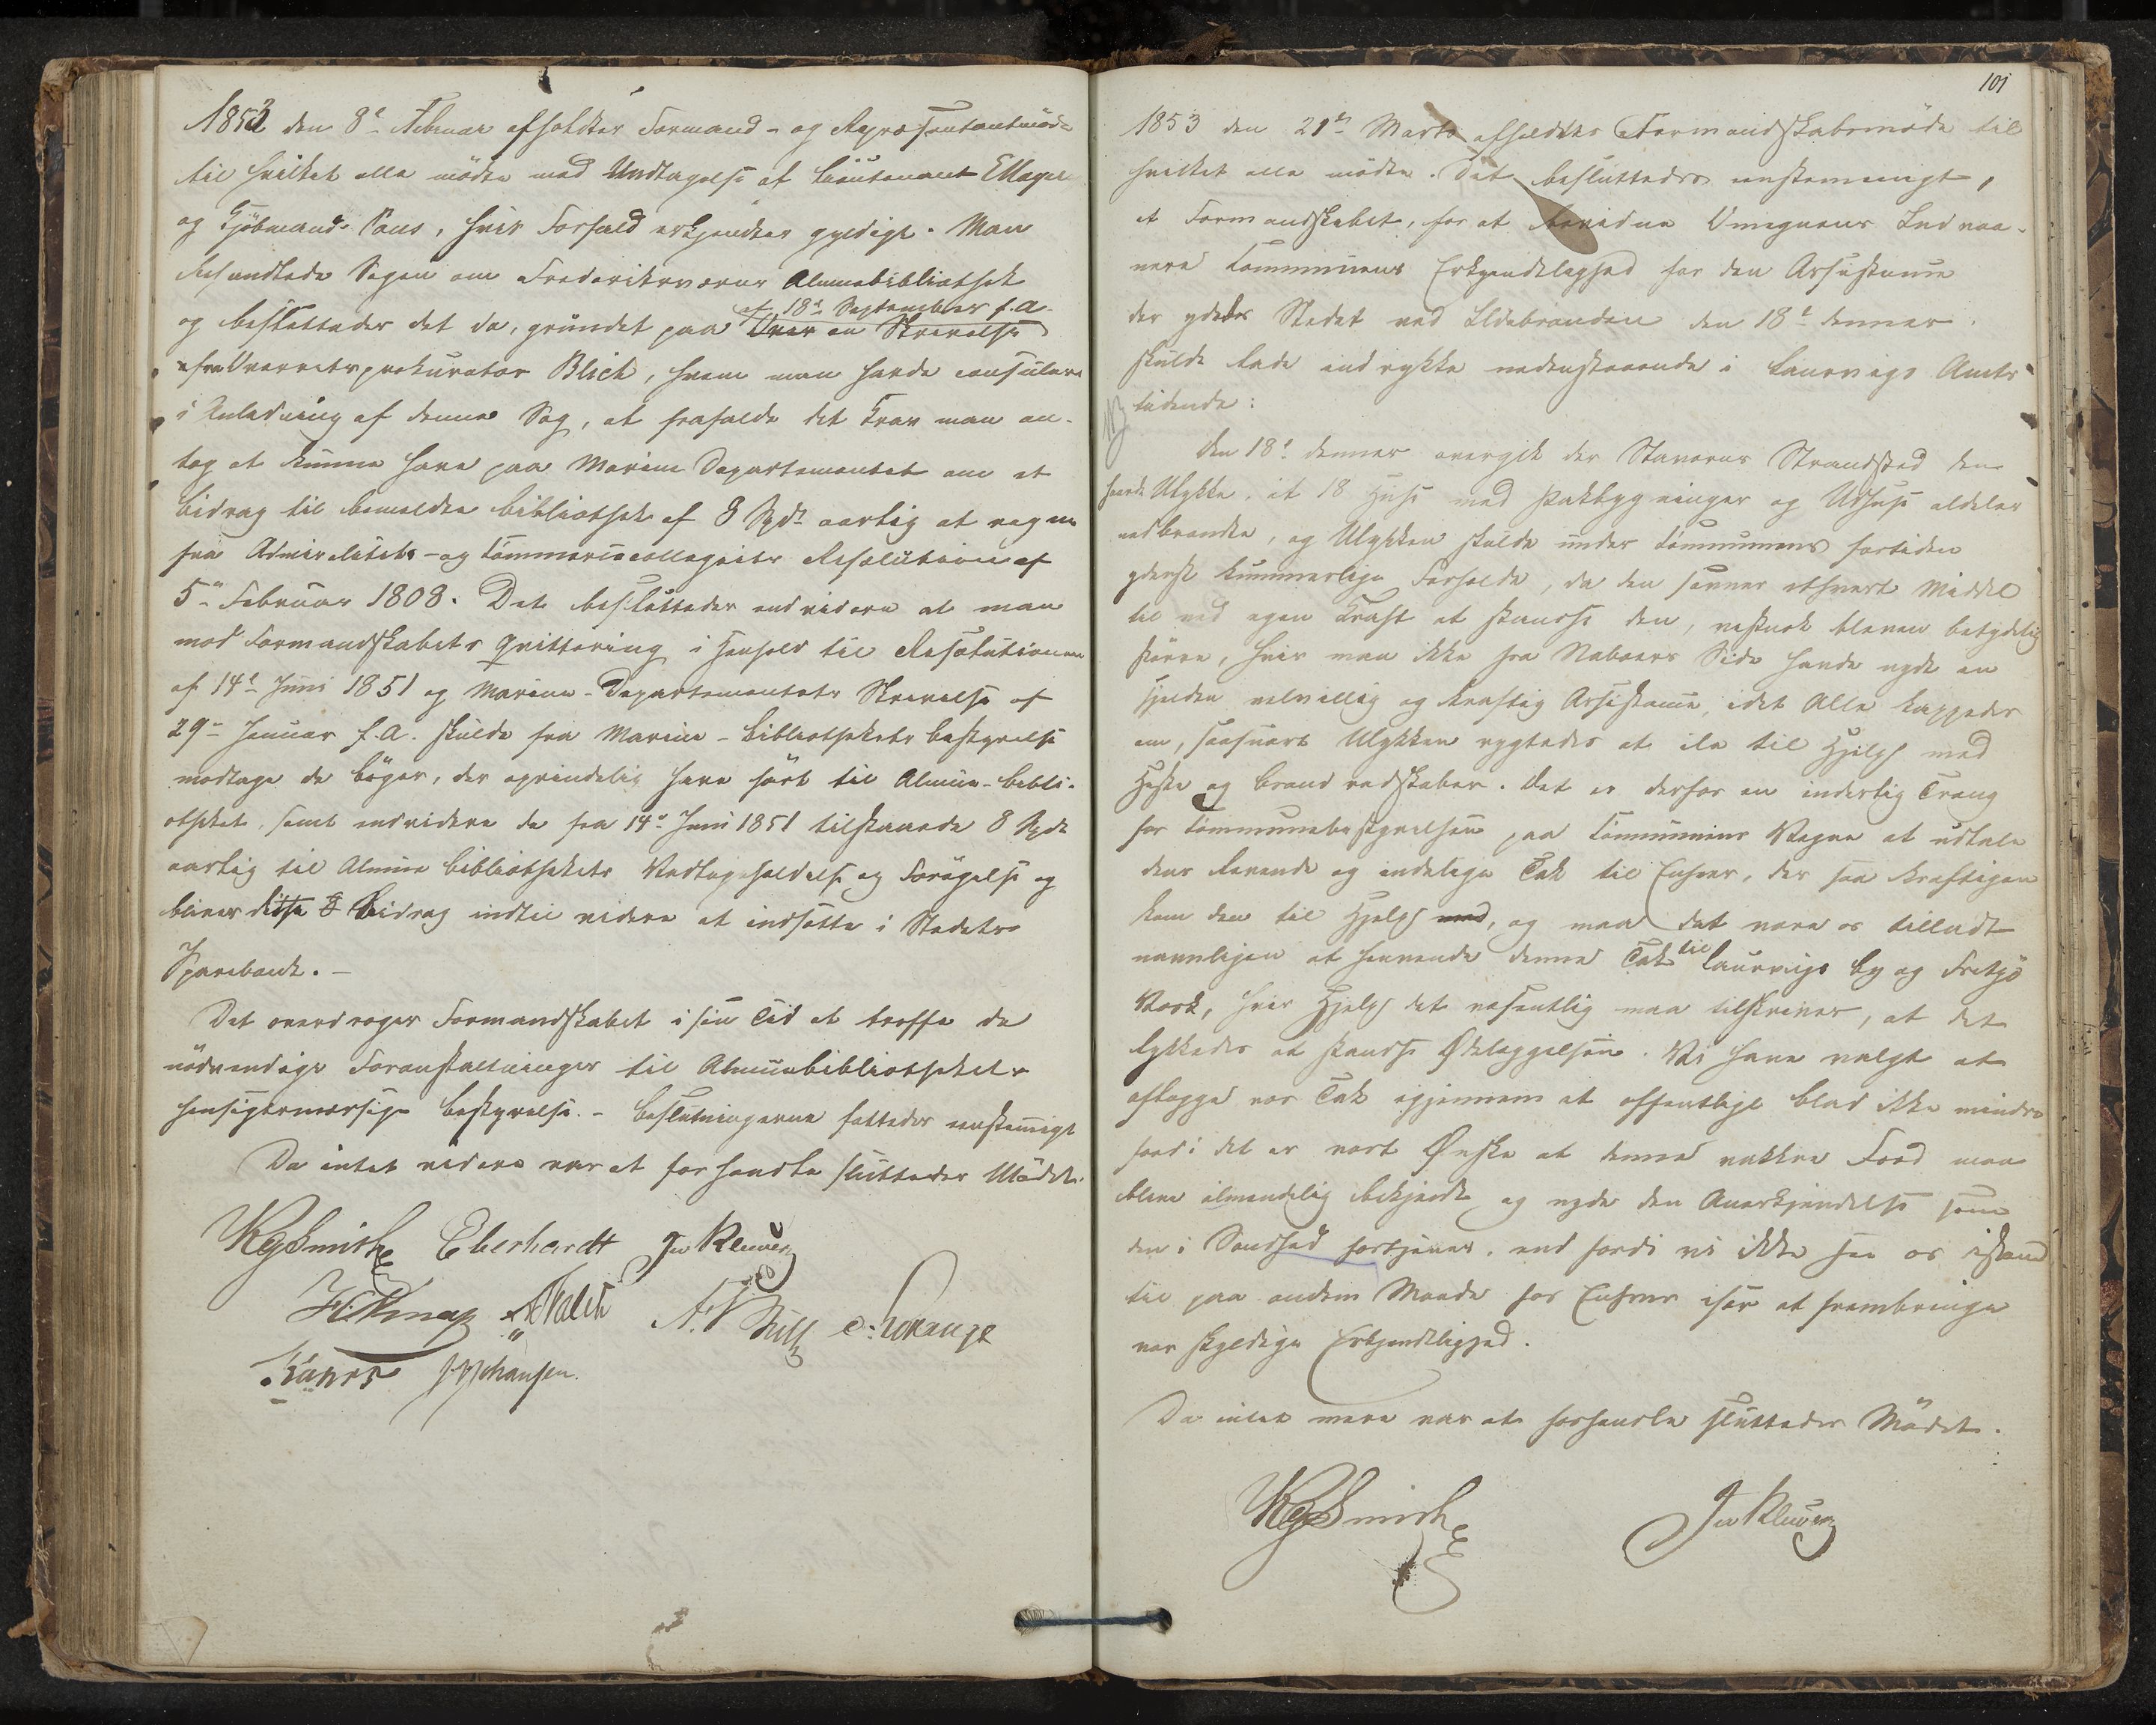 1853 den 8de Februar afholdtes Formand- og Repræsentantmøde
til hvilket alle mødte med Undtagelse af Lieutenant
og Kjøbmand Paus, hvis Forfald erkjendtes gyldigt. Man
behandlede Sagen om Frederiksværns Almuebibliothek
af 18de September f. A.
og besluttedes det da, grundet paa en Skrivelse
fra Overretsprokurator Blich, hvem man havde consuleret
i Anledning af denne Sag, at frafalde det Krav man an-
tog at kunne have paa Marine Departementet om et
Bidrag til bemeldte Bibliothek af 8 Spd aarlig at regne
fra Admiralitets- og Commercecollegiets Resolution af
5te Februar 1808. Det besluttedes endvidere at man
mod Formandskabets Qvittering i Henhold til Resolutionen
af 14de Juni 1851 og Marine-Departementets Skrivelse af
29de Januar f. A. skulde fra Marine-Bibliothekets Bestyrelse
modtage de Bøger, der oprindelig have hørt til Almue-Bibli-
otheket, samt endvidere de fra 14de Juni 1851 tilstaaede 8 Spd
aarlig til Almue Bibliothekets Vedligeholdelse og Forøgelse og
bliver disse Bidrag indtil videre at indsætte i Stedets
Sparebank. -
Det overdrages Formandskabet i sin Tid at træffe de
nødvendige Foranstaltninger til Almuebibliothekets
hensigtsmæssige Bestyrelse. - Beslutningerne fattedes eenstemmigt
Da intet videre var at forhandle sluttedes Mødet.
Eberhardt Kluwer
J. Johansen.
101
1853 den 21de Marts afholdtes Formandskabsmøde til
hvilket alle mødte. Det besluttedes eenstemmigt,
at Formandskabet, for at bevidne Omegnens Indvaa-
nere Communens Erkjendtlighed for den Assistance
der ydedes Stedet ved Ildebranden den 18de dennes
skulde lade indrykke nedenstaaende i Laurvigs Amts-
tidende:
Den 18de dennes overgik der Staværns Strandsted den
haarde Ulykke, at 18 Huse med Pakbygninger og Udhuse aldeles
nedbrændte, og Ulykken skulde under Communens fortiden
yderst kummerlige Forholde, da den savner ethvert Middel
til ved egen Kraft at standse den, vistnok bleven betydelig
større, hvis man ikke fra Naboers Side havde nydt en
sjelden velvillig og kraftig Assistance, idet Alle kappedes
om, saasnart Ulykken rygtedes at ile til Hjelp med
Heste og Brandredskaber. Det er derfor en inderlig Trang
for Communebestyrelsen paa Communens Vegne at udtale
dens levende og inderlige Tak til Enhver, der saa kraftigen
kom den til Hjelp med, og maa det være os tilladt
navnligen at henvende denne Tak til Laurvigs By og Fritzø
Værk, hvis Hjelp det væsentlig maa tilskrives, at det
lykkedes at standse Ødelæggelsen. Vi have valgt at
aflægge vor Tak igjennem et offentligt Blad ikke mindre
fordi det er vort Ønske at denne vakkre Færd maa
blive almindelig bekjendt og nyde den Anerkjendelse som
den i Sandhed fortjener, end fordi vi ikke see os istand
til paa anden Maade for Enhver især at frembringe
vor skyldige Erkjendtlighed.
Da intet mere var at forhandle sluttedes Mødet.
Kluwer